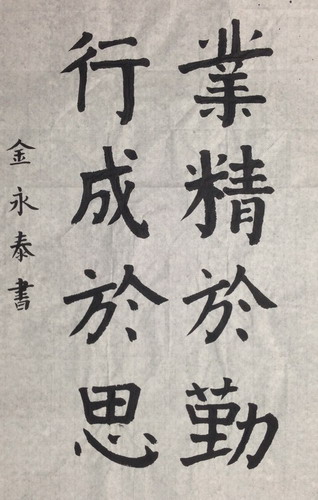 業精於勤
行成於思
金永泰書